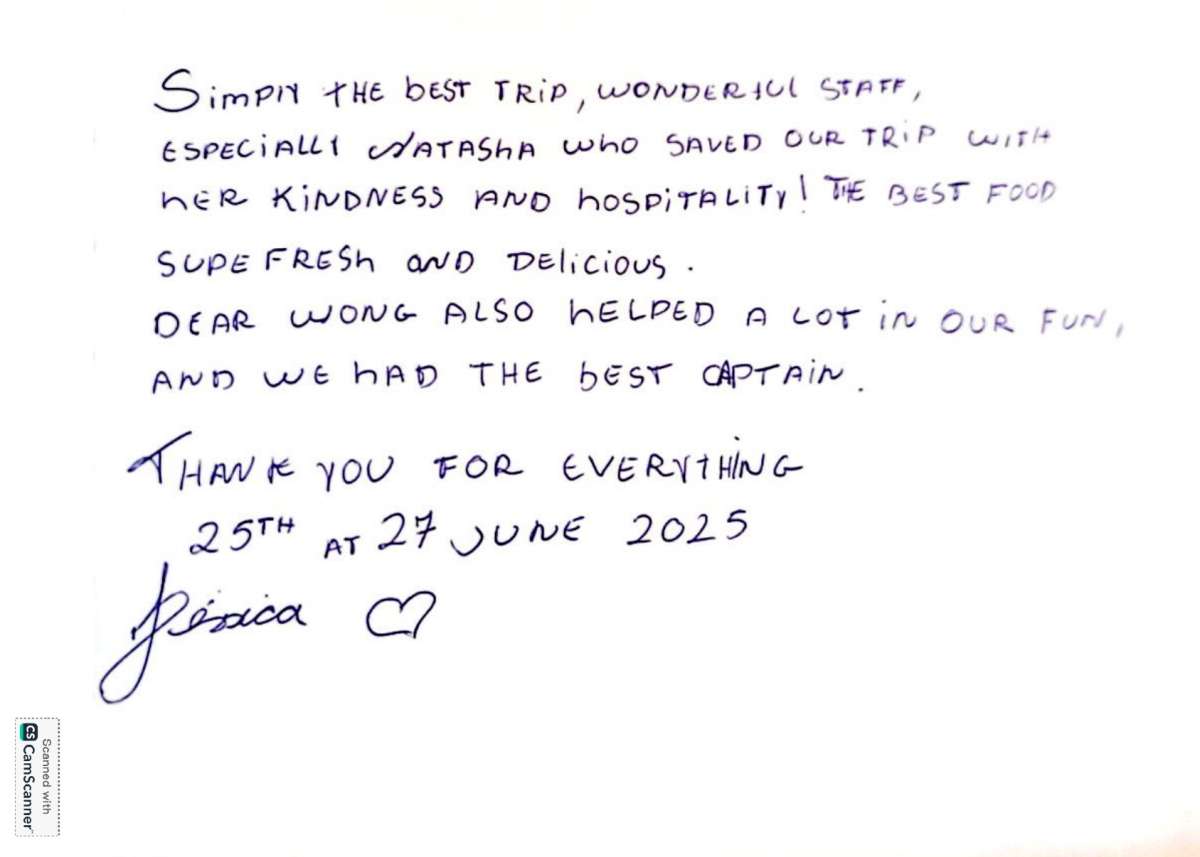 Simply THE bEST TRiP, WONDERful STAFF,
ESPECiALLY NATAShA who SAVED OUR TRiP WiTH
hER KiNDNESS AND hOSPiTALiTy! THE BEST FOOD
SUPE FRESh AND DEliciOUS.
DEAR WONG ALSO hELPED A LOT iN OUR FUN,
AND WE hAD THE bEST CAPTAiN.
THANK YOU FOR EVERYTHiNG
25TH AT 27 JUNE 2025
Jéssica ♡
Scanned with
CS CamScanner